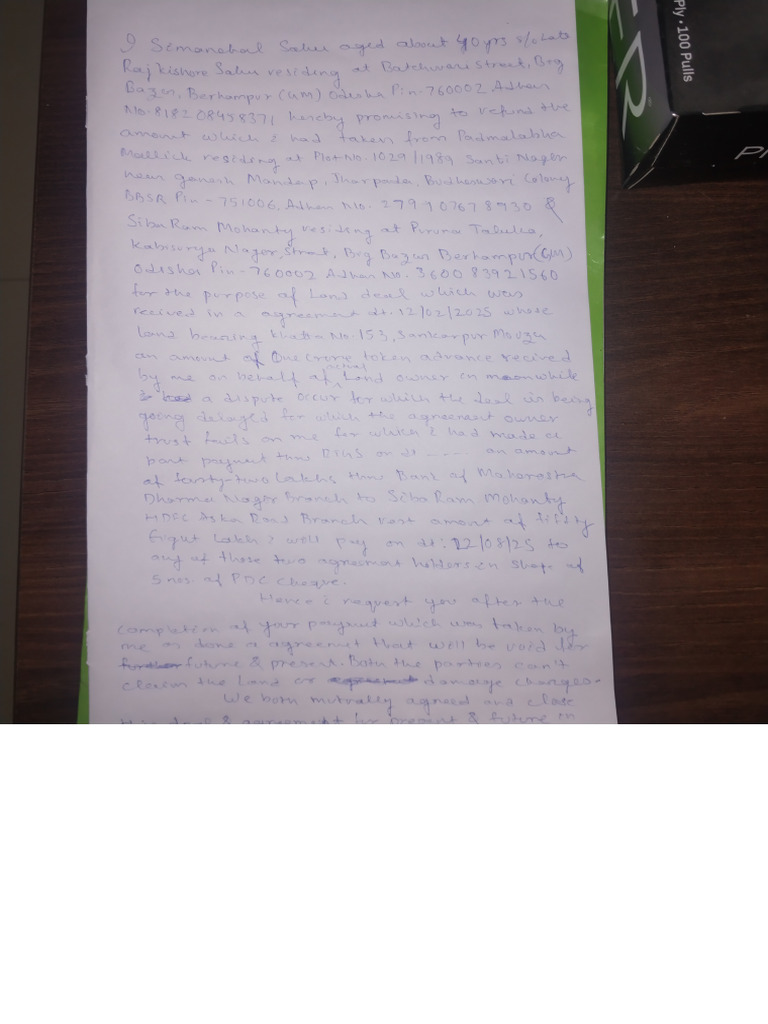 I Simanchal Sahu aged about 40 yrs s/o Late
Raj kishore Sahu residing at Batchwari Street, Big
Bazar, Berhampur (GM) Odisha Pin-760002, Adhar
No. 8182 08458371 hereby promising to refund the
amount which i had taken from Padmalabha
Mallick residing at Plot No. 1029/1989 Santi Nagar
near ganesh Mandap, Jharpada, Budheswari Colony
BBSR Pin - 751006, Adhar No. 279907678930 &
Siba Ram Mohanty residing at Puruna Taluka,
Kabisurya Nagar, Street, Big Bazar Berhampur (GM)
Odisha Pin-760002 Adhar No. 3600 83921560
for the purpose of Land deal which was
recived in a agreement dt. 12/02/2025 whose
land bearing khatta No. 153, Sankarpur Mouza
an amount of One crore token advance recived
by me on behalf of actual Land owner in meanwhile
a dispute occur for which the deal is being
going delayed for which the agreement owner
trust fails on me for which i had made a
part payment thru RTGS on dt ..... an amount
of forty-two Lakhs thru Bank of Maharastra
Dharma Nagar Branch to Siba Ram Mohanty
HDFC Aska Road Branch rest amont of fiffty
Eight Lakh i will pay on dt: 12/08/25 to
any of these two agreement holders in shape of
5 nos. of PDC Cheque.
Hence i request you after the
completion of your payment which was taken by
me as done a agreement that will be void for
future & present. Both the parties can't
claim the Land or damage charges.
We both mutually agreed and close
this deal & agreement for present & future in
PLY • 100 Pulls
ER